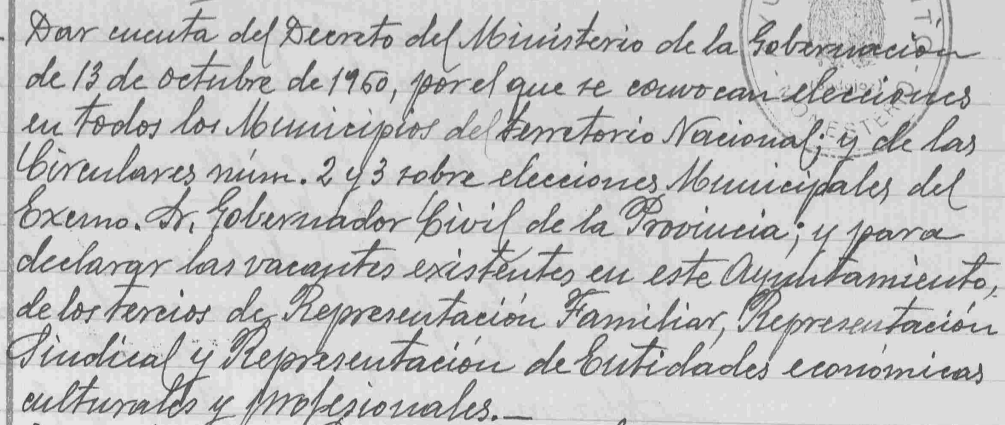 Dar cuenta del Decreto del Ministerio de la Gobernación
de 13 de octubre de 1960, por el que se convocan elecciones
en todos los Municipios del territorio Nacional; y de las
Circulares núm. 2 y 3 sobre elecciones Municipales del
Excmo. Sr. Gobernador Civil de la Provincia; y para
declarar las vacantes existentes en este Ayuntamiento,
de los tercios de Representación Familiar, Representación
Sindical y Representación de Entidades económicas
culturales y profesionales.—